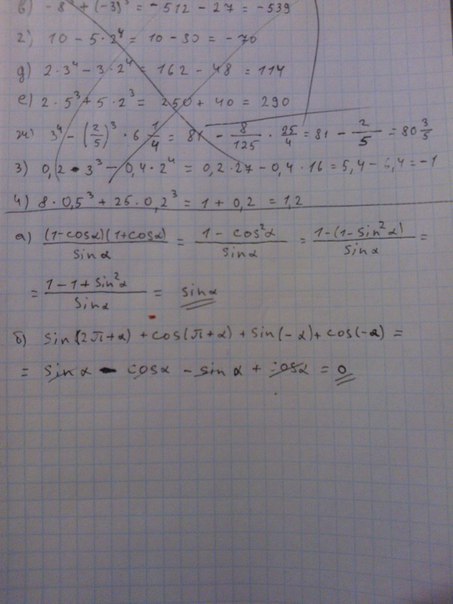 в) -8³ + (-3)³ = -512 - 27 = -539
г) 10 - 5·2⁴ = 10 - 80 = -70
д) 2·3⁴ - 3·2⁴ = 162 - 48 = 114
е) 2·5³ + 5·2³ = 250 + 40 = 290
ж) 3⁴ - (2/5)³ · 6 1/4 = 81 - 8/125 · 25/4 = 81 - 2/5 = 80 3/5
з) 0,2 · 3³ - 0,4 · 2⁴ = 0,2 · 27 - 0,4 · 16 = 5,4 - 6,4 = -1
и) 8 · 0,5³ + 25 · 0,2³ = 1 + 0,2 = 1,2
а) (1-cosα)(1+cosα)/sinα = 1 - cos²α/sinα = 1-(1-sin²α)/sinα =
= 1-1+sin²α/sinα = sinα
б) sin(2π+α) + cos(π+α) + sin(-α) + cos(-α) =
= sinα - cosα - sinα + cosα = 0